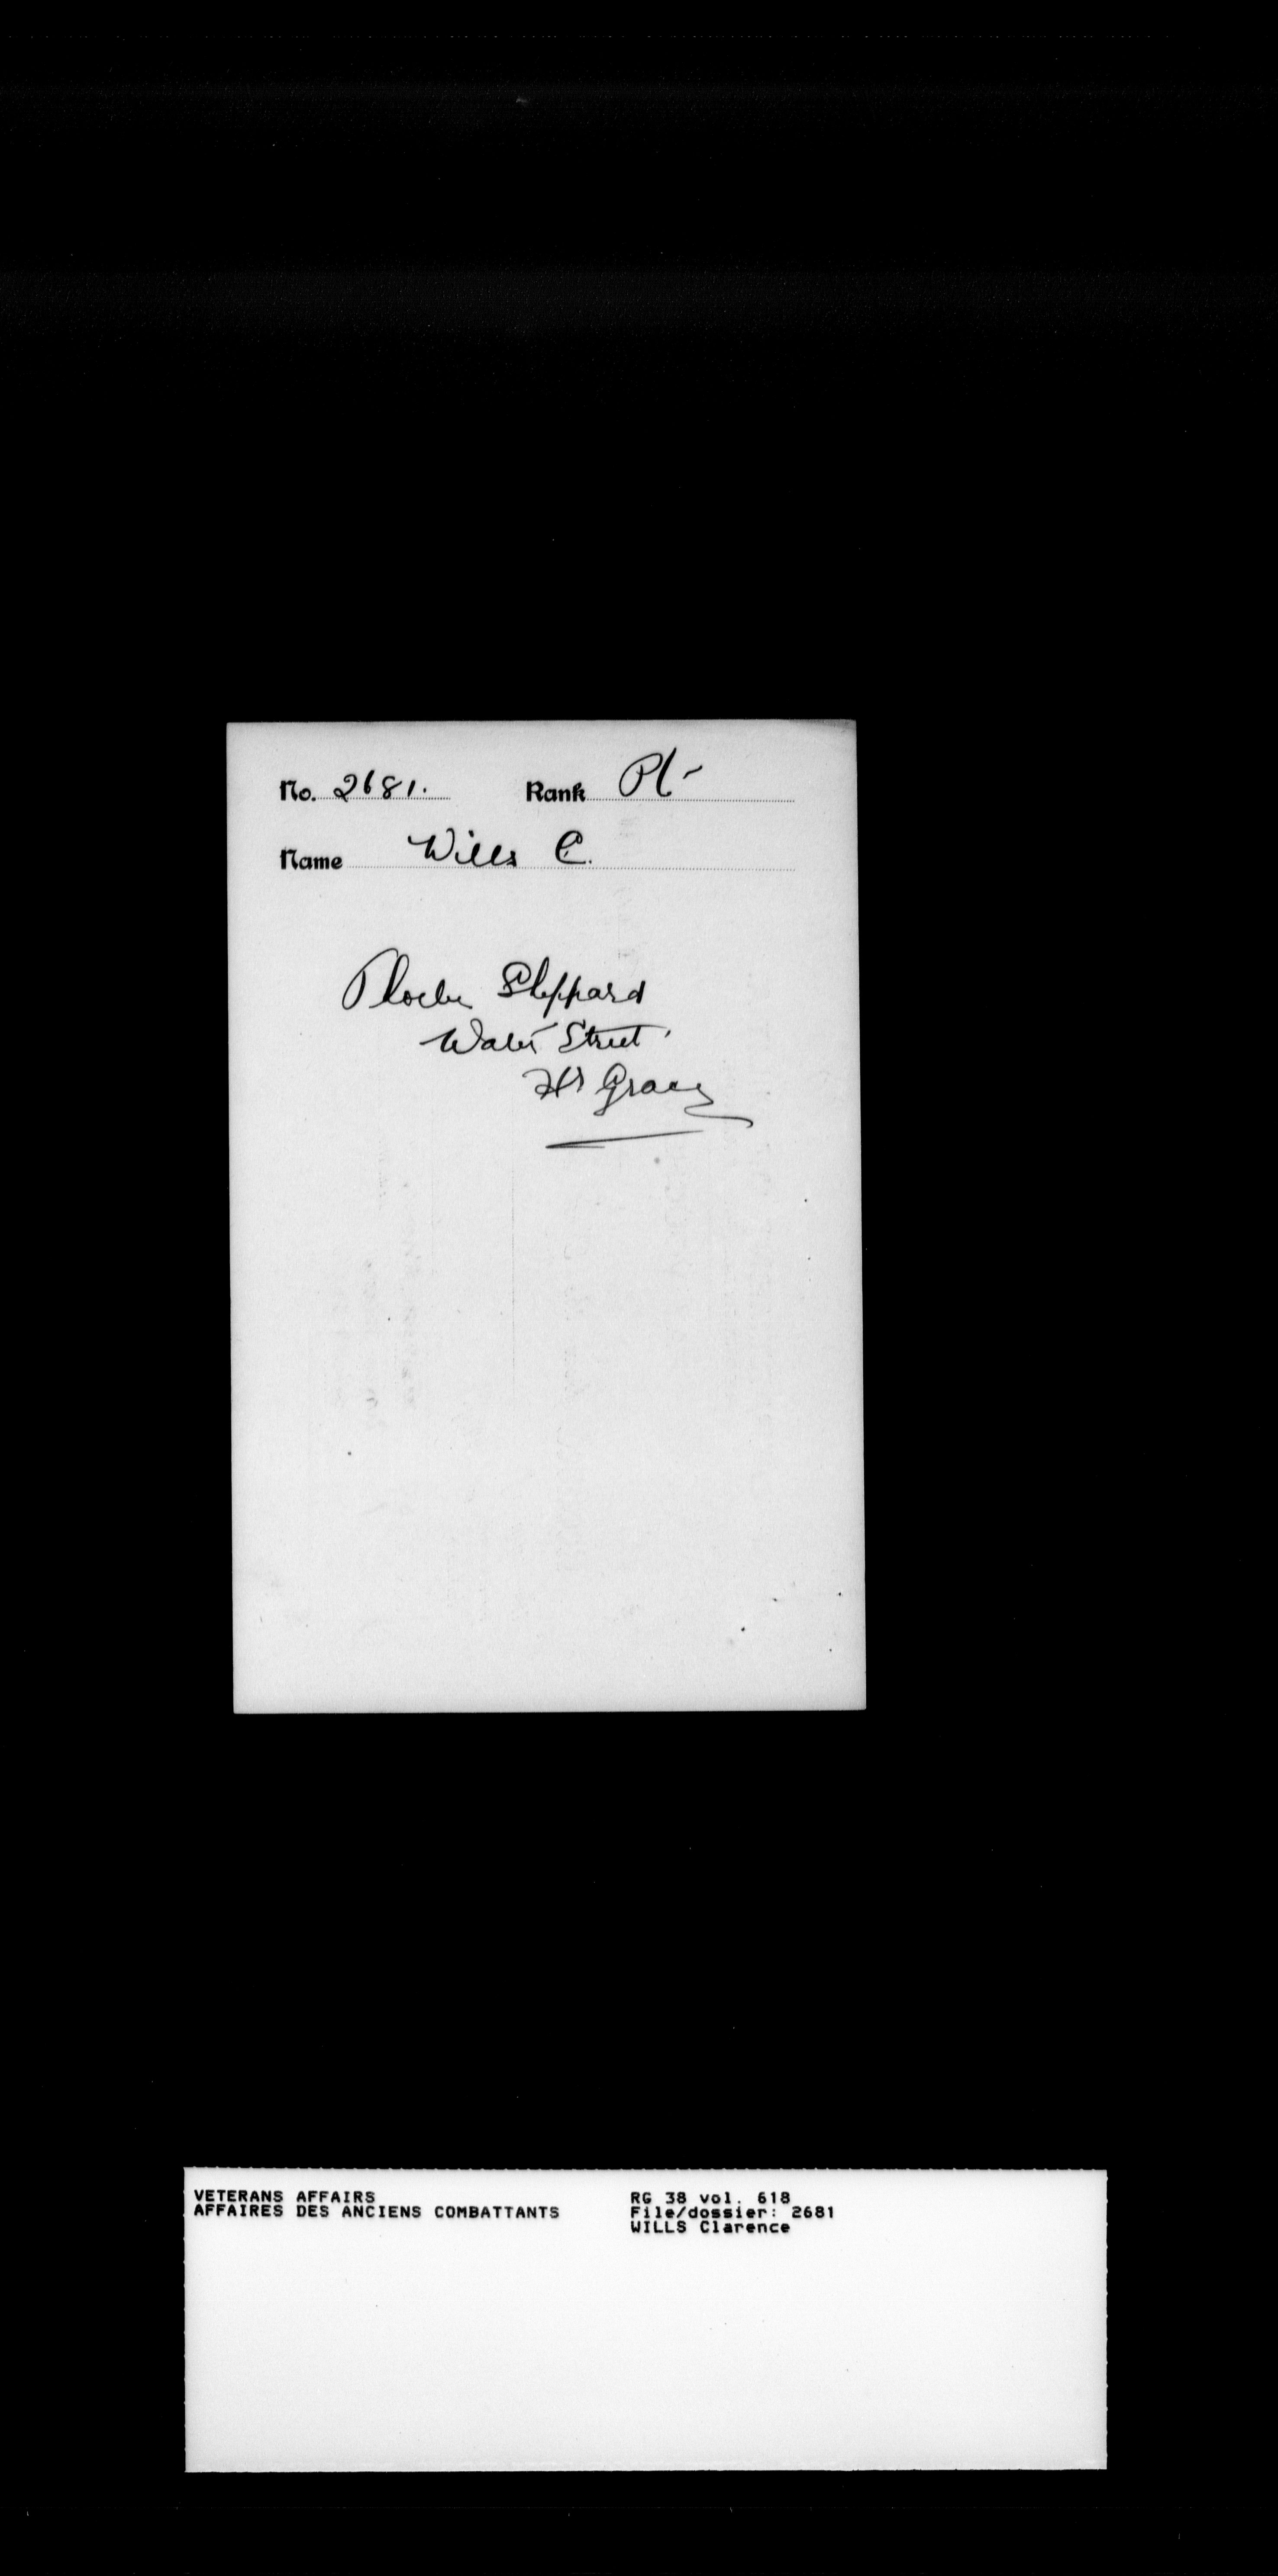 No. 2681. Rank Pt-
Name Wills C.
Phoebe Sheppard
Water Street
Hr Grace
VETERANS AFFAIRS
AFFAIRES DES ANCIENS COMBATTANTS
RG 38 vol. 618
File/dossier: 2681
WILLS Clarence